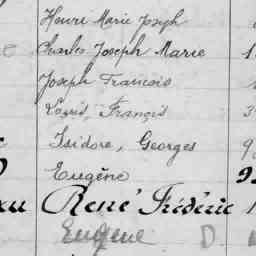 Henri Marie Joseph
Charles Joseph Marie 1
Joseph Francois
Louis, François 3
Isidore, Georges 9
Eugène 9
René Frédéric 1
Eugene D.